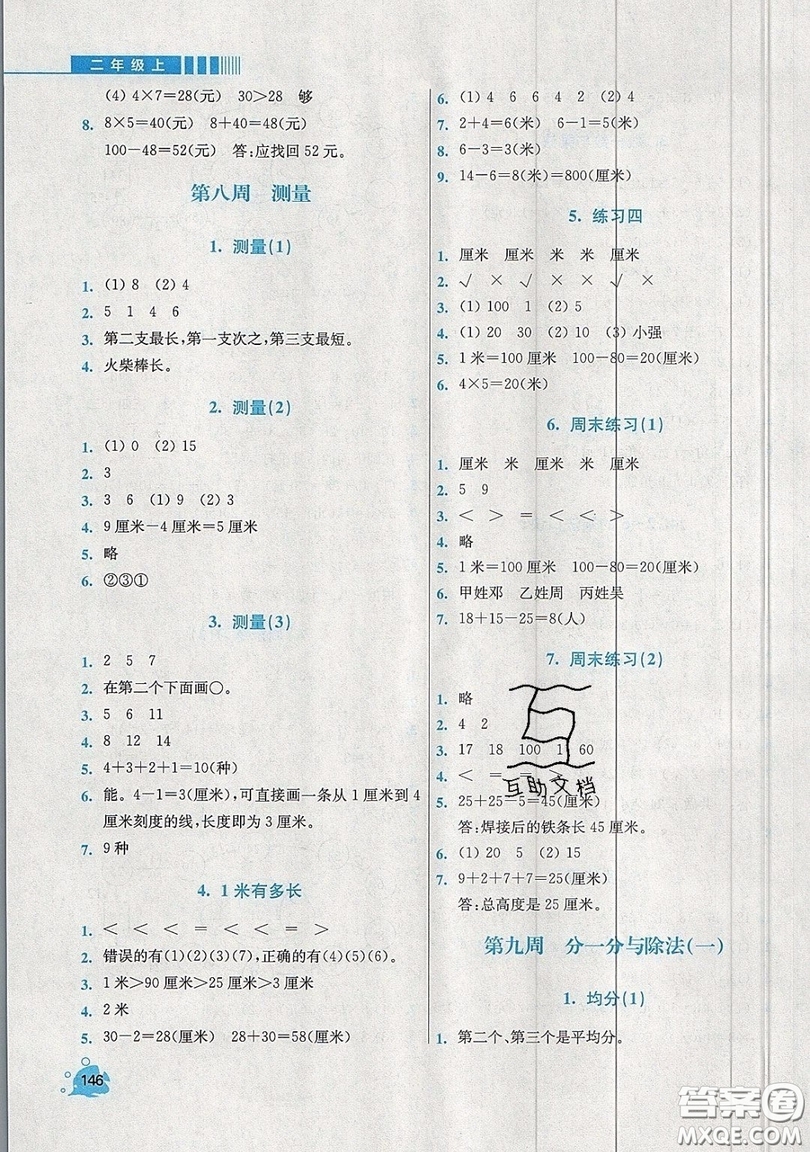 二年级上
(4) 4×7=28(元) 30>28 够
8. 8×5=40(元) 8+40=48(元)
100-48=52(元) 答:应找回 52 元。
第八周 测量
1. 测量(1)
1. (1) 8 (2) 4
2. 5 1 4 6
3. 第二支最长,第一支次之,第三支最短。
4. 火柴棒长。
2. 测量(2)
1. (1) 0 (2) 15
2. 3
3. 3 6 (1) 9 (2) 3
4. 9 厘米-4 厘米=5 厘米
5. 略
6. ②③①
3. 测量(3)
1. 2 5 7
2. 在第二个下面画○。
3. 5 6 11
4. 8 12 14
5. 4+3+2+1=10(种)
6. 能。4-1=3(厘米),可直接画一条从 1 厘米到 4
厘米刻度的线,长度即为 3 厘米。
7. 9 种
4. 1 米有多长
1. < < < < = < = >
2. 错误的有(1)(2)(3)(7),正确的有(4)(5)(6)。
3. 1 米>90 厘米>25 厘米>9 厘米>3 厘米
4. 2 米
5. 30-2=28(厘米) 28+30=58(厘米)
146
6. (1) 4 6 6 4 2 (2) 4
7. 2+4=6(米) 6-1=5(米)
8. 6-3=3(米)
9. 14-6=8(米)=800(厘米)
5. 练习四
1. 厘米 厘米 米 米 厘米
2. √ × √ × √ ×
3. (1) 100 1 (2) 5
4. (1) 20 30 (2) 10 (3) 小强
5. 1 米=100 厘米 100-80=20(厘米)
6. 4×5=20(米)
6. 周末练习(1)
1. 厘米 米 厘米 米 厘米
2. 5 9
3. < > = < < >
4. 略
5. 1 米=100 厘米 100-80=20(厘米)
6. 甲姓邓 乙姓周 丙姓吴
7. 18+15-25=8(人)
7. 周末练习(2)
1. 略
2. 4 2
3. 17 18 100 1 60
4. < = = >
5. 25+25-5=45(厘米)
答:焊接后的铁条长 45 厘米。
6. (1) 20 5 (2) 15
7. 9+2+7+7=25(厘米)
答:总高度是 25 厘米。
第九周 分一分与除法(一)
1. 均分(1)
1. 第二个、第三个是平均分。
互助文档
答案圈
MXQE.COM